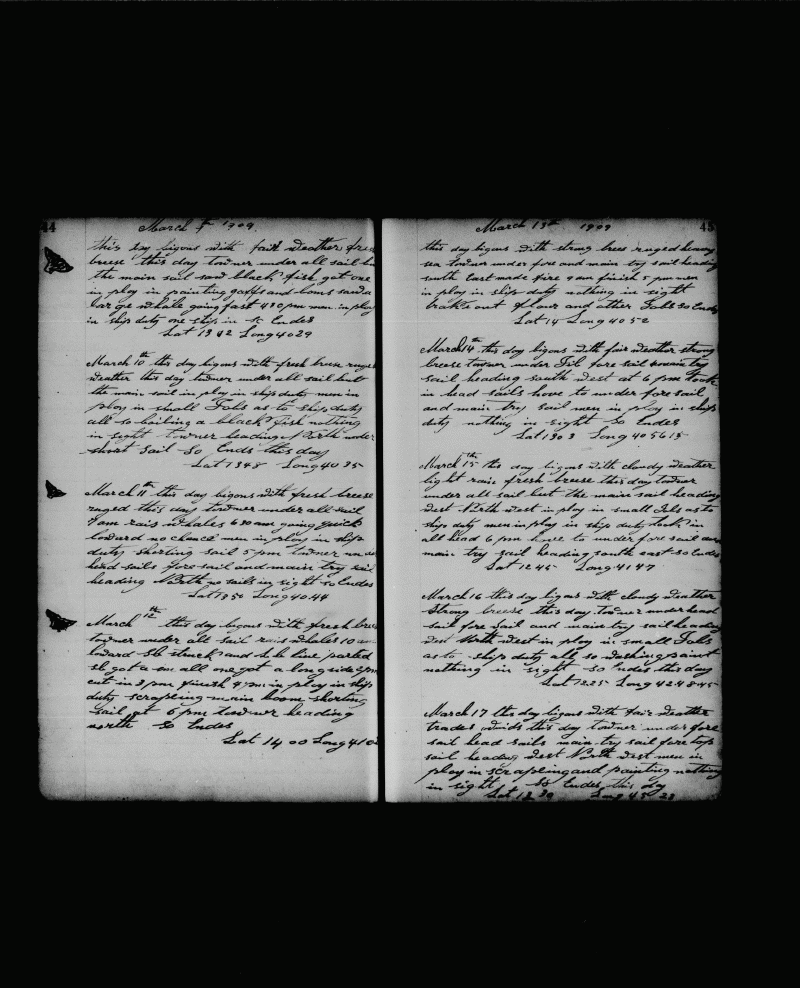 44
March 9th 1909
this day bigons with fair weather fresh
breese this day towner under all sail but
the main sail saw black fish got one
in ploy in painting gaffs and boms saw a
large whale going fast 4 30 pm men in ploy
in ship duty one ship in st Endes
Lat 13 42 Long 40 29
March 10th this day bigons with fresh breese ruged
weather this day towner under all sail but
the main sail in ploy in ships duty men in
ploy in small Jobs as to ship duty
all so boiling a black fish nothing
in sight towner heading North under
short sail So Ends this day
Lat 13 48 Long 40 35
March 11th this day bigons with fresh breese
ruged this day towner under all sail
7 am rais whales 6 30 am going quick
loward no chance men in ploy in ship
duty shorting sail 5 pm towner under
head sails fore sail and main try sail
heading North go sails in sight so Endes
Lat 13 50 Long 40.44
March 12th this day bigons with fresh breese
towner under all sail rais whales 10 am
loward Sb struck and line parted
Sb got a all one got a long side 2 pm
cut in 3 pm finish 4 pm in ploy in ships
duty scrapling main boom shorting
sail at 6 pm towner heading
north So Endes
Lat 14 00 Long 41 0
45
March 13th 1909
this day bigons with strong brees ruged heavy
sea towner under fore and main try sail heading
south East made fire 9 am finish 5 pm men
in ploy in ships duty nothing in sight
brake out flour and other Jobs So Ends
Lat 14 Long 40 52
March 14th this day bigons with fair weather strong
breese towner under Jib fore sail & main try
sail heading south west at 6 pm took
in head sails hove to under fore sail
and main try sail men in ploy in ships
duty nothing in sight So Endes
Lat 13 03 Long 40 56 15
March 15th this day bigons with cloudy weather
light rain fresh breese this day towner
under all sail but the main sail heading
West North West in ploy in small Jobs as to
ship duty men in ploy in ship duty took in
all head 6 pm hove to under fore sail and
main try sail heading south east So Endes
Lat 12 45 Long 41 47
March 16 this day bigons with cloudy weather
Strong breese this day towner under head
sail fore sail and main try sail heading
West North West in ploy in small Jobs
as to ships duty all so washing paint
nothing in sight so Endes this day
Lat 12 25 Long 42 48 45
March 17 this day bigons with fair weather
trades winds this day towner under fore
sail head sails main try sail fore top
sail heading West North West men in
ploy in scrapling and painting nothing
in sight So Endes this day
Lat 12 29 Long 45 23